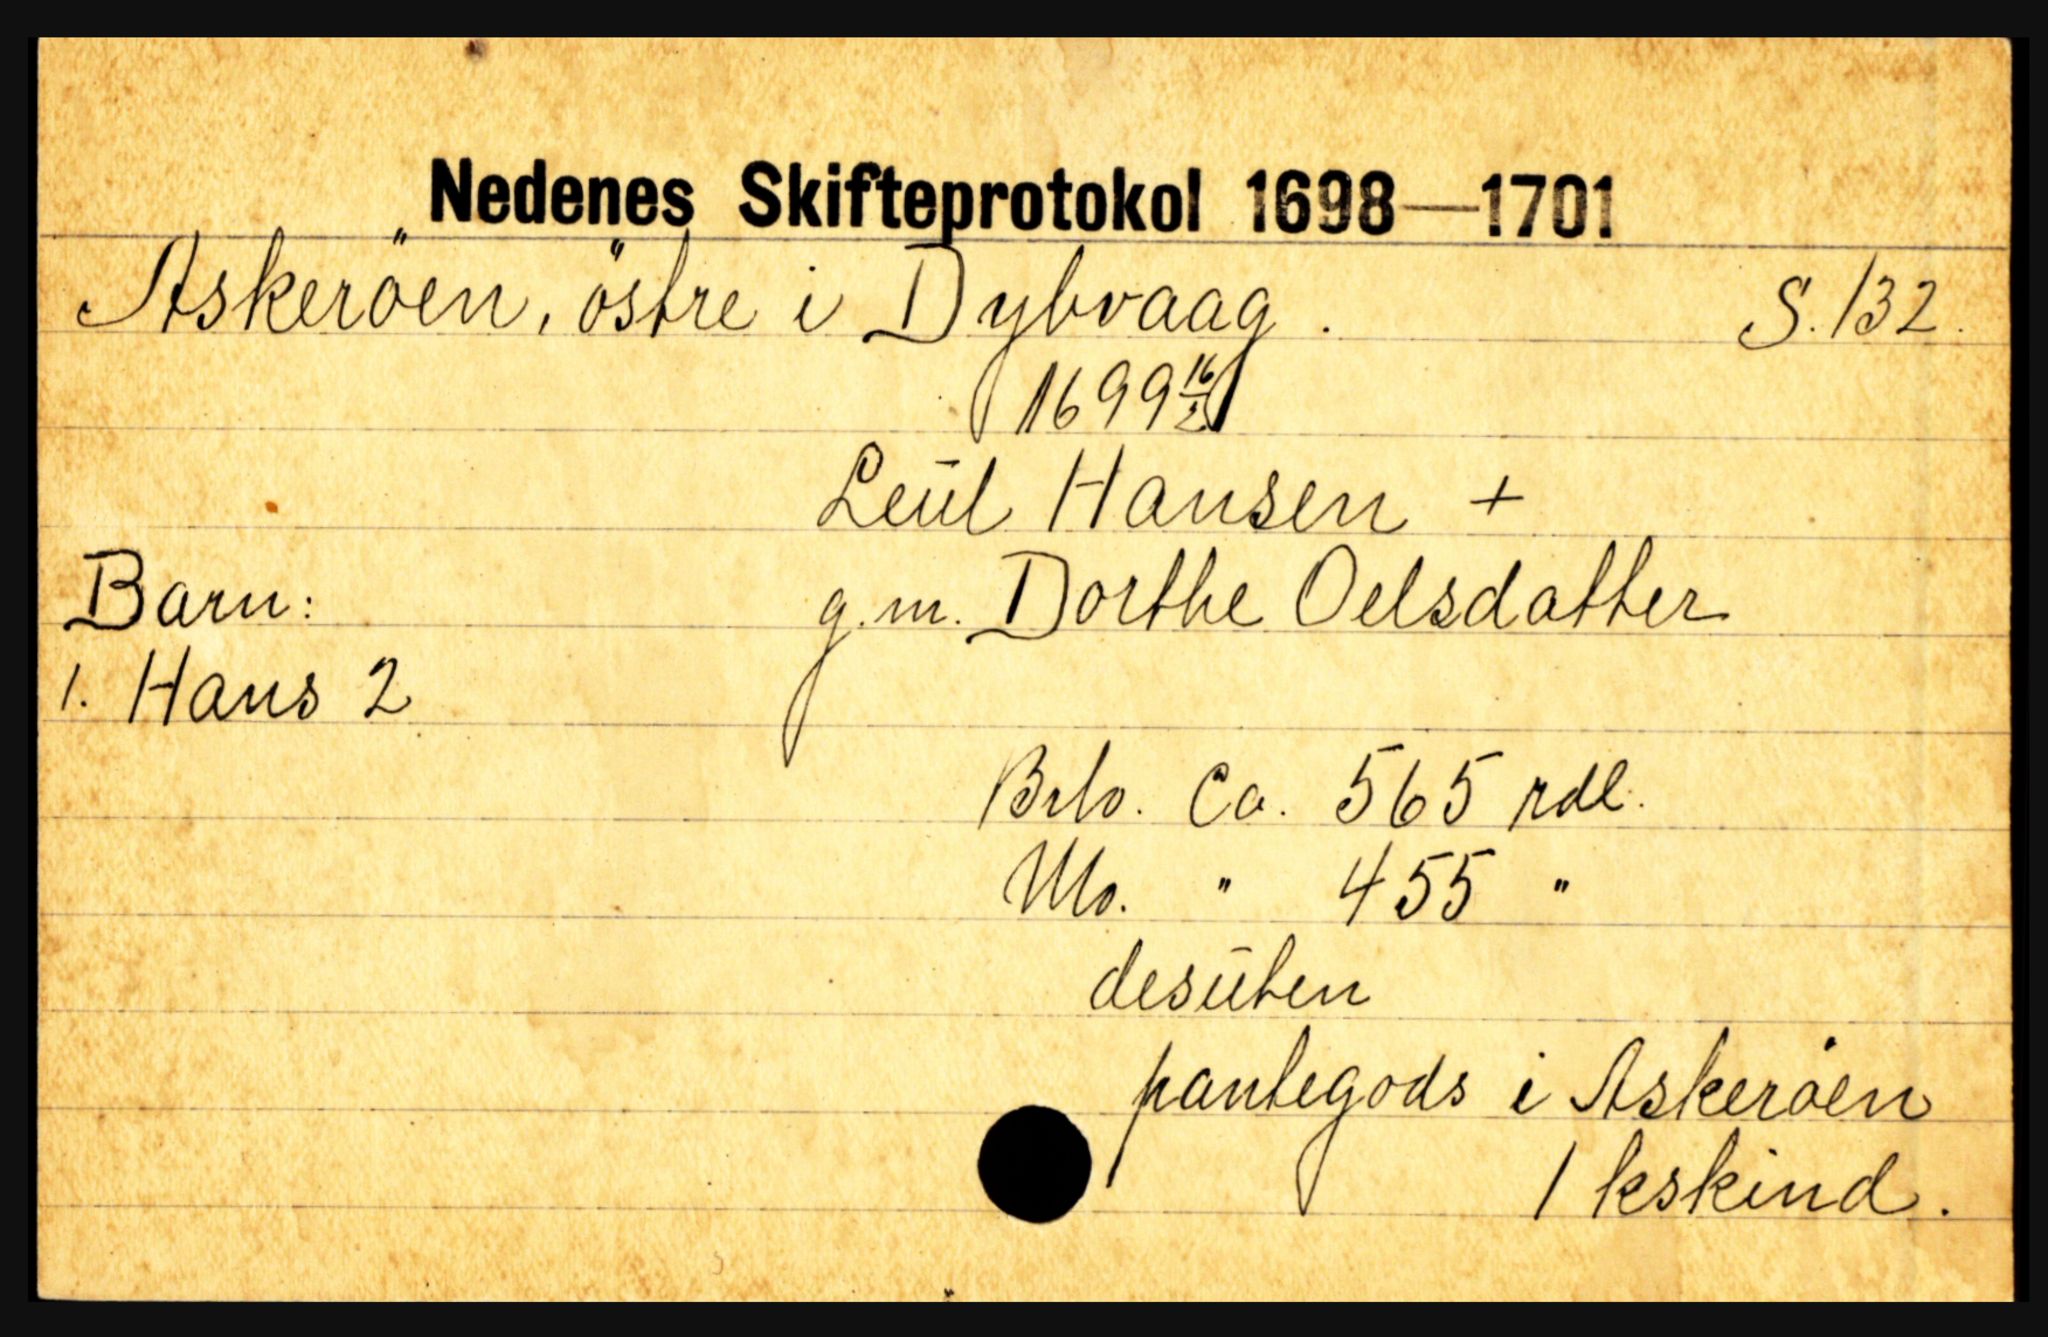 Nedenes Skifteprotokol 1698—1701
Askeröen, östre i Dybvaag. S. 132.
1699 16/2
Leül Hansen +
Barn: g.m. Dorthe Oelsdatter
1. Hans 2
Brlo. Ca. 565 rdl.
Mo. " 455 "
desüten
pantegods i Askeröen
1 kskind.